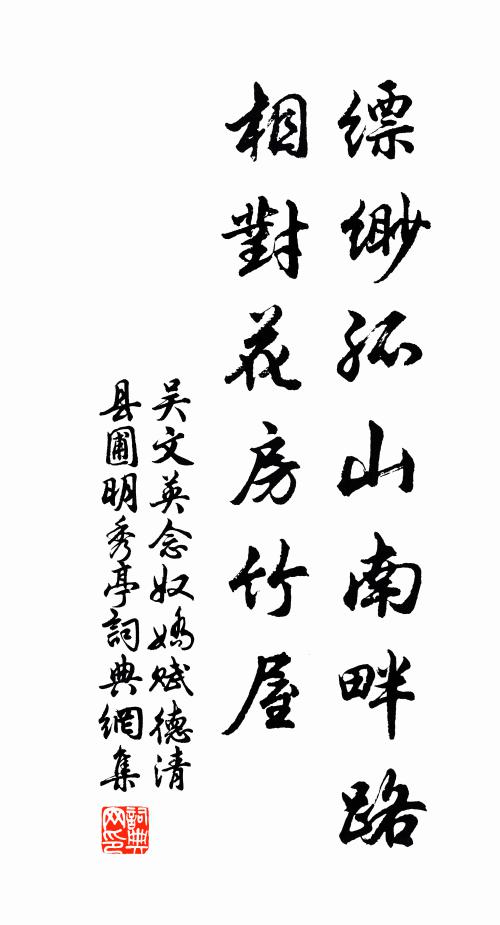 缥缈孤山南畔路
相對花房竹屋
吴文英念奴嬌賦德清
县圃明秀亭詞典網集
詞典网印